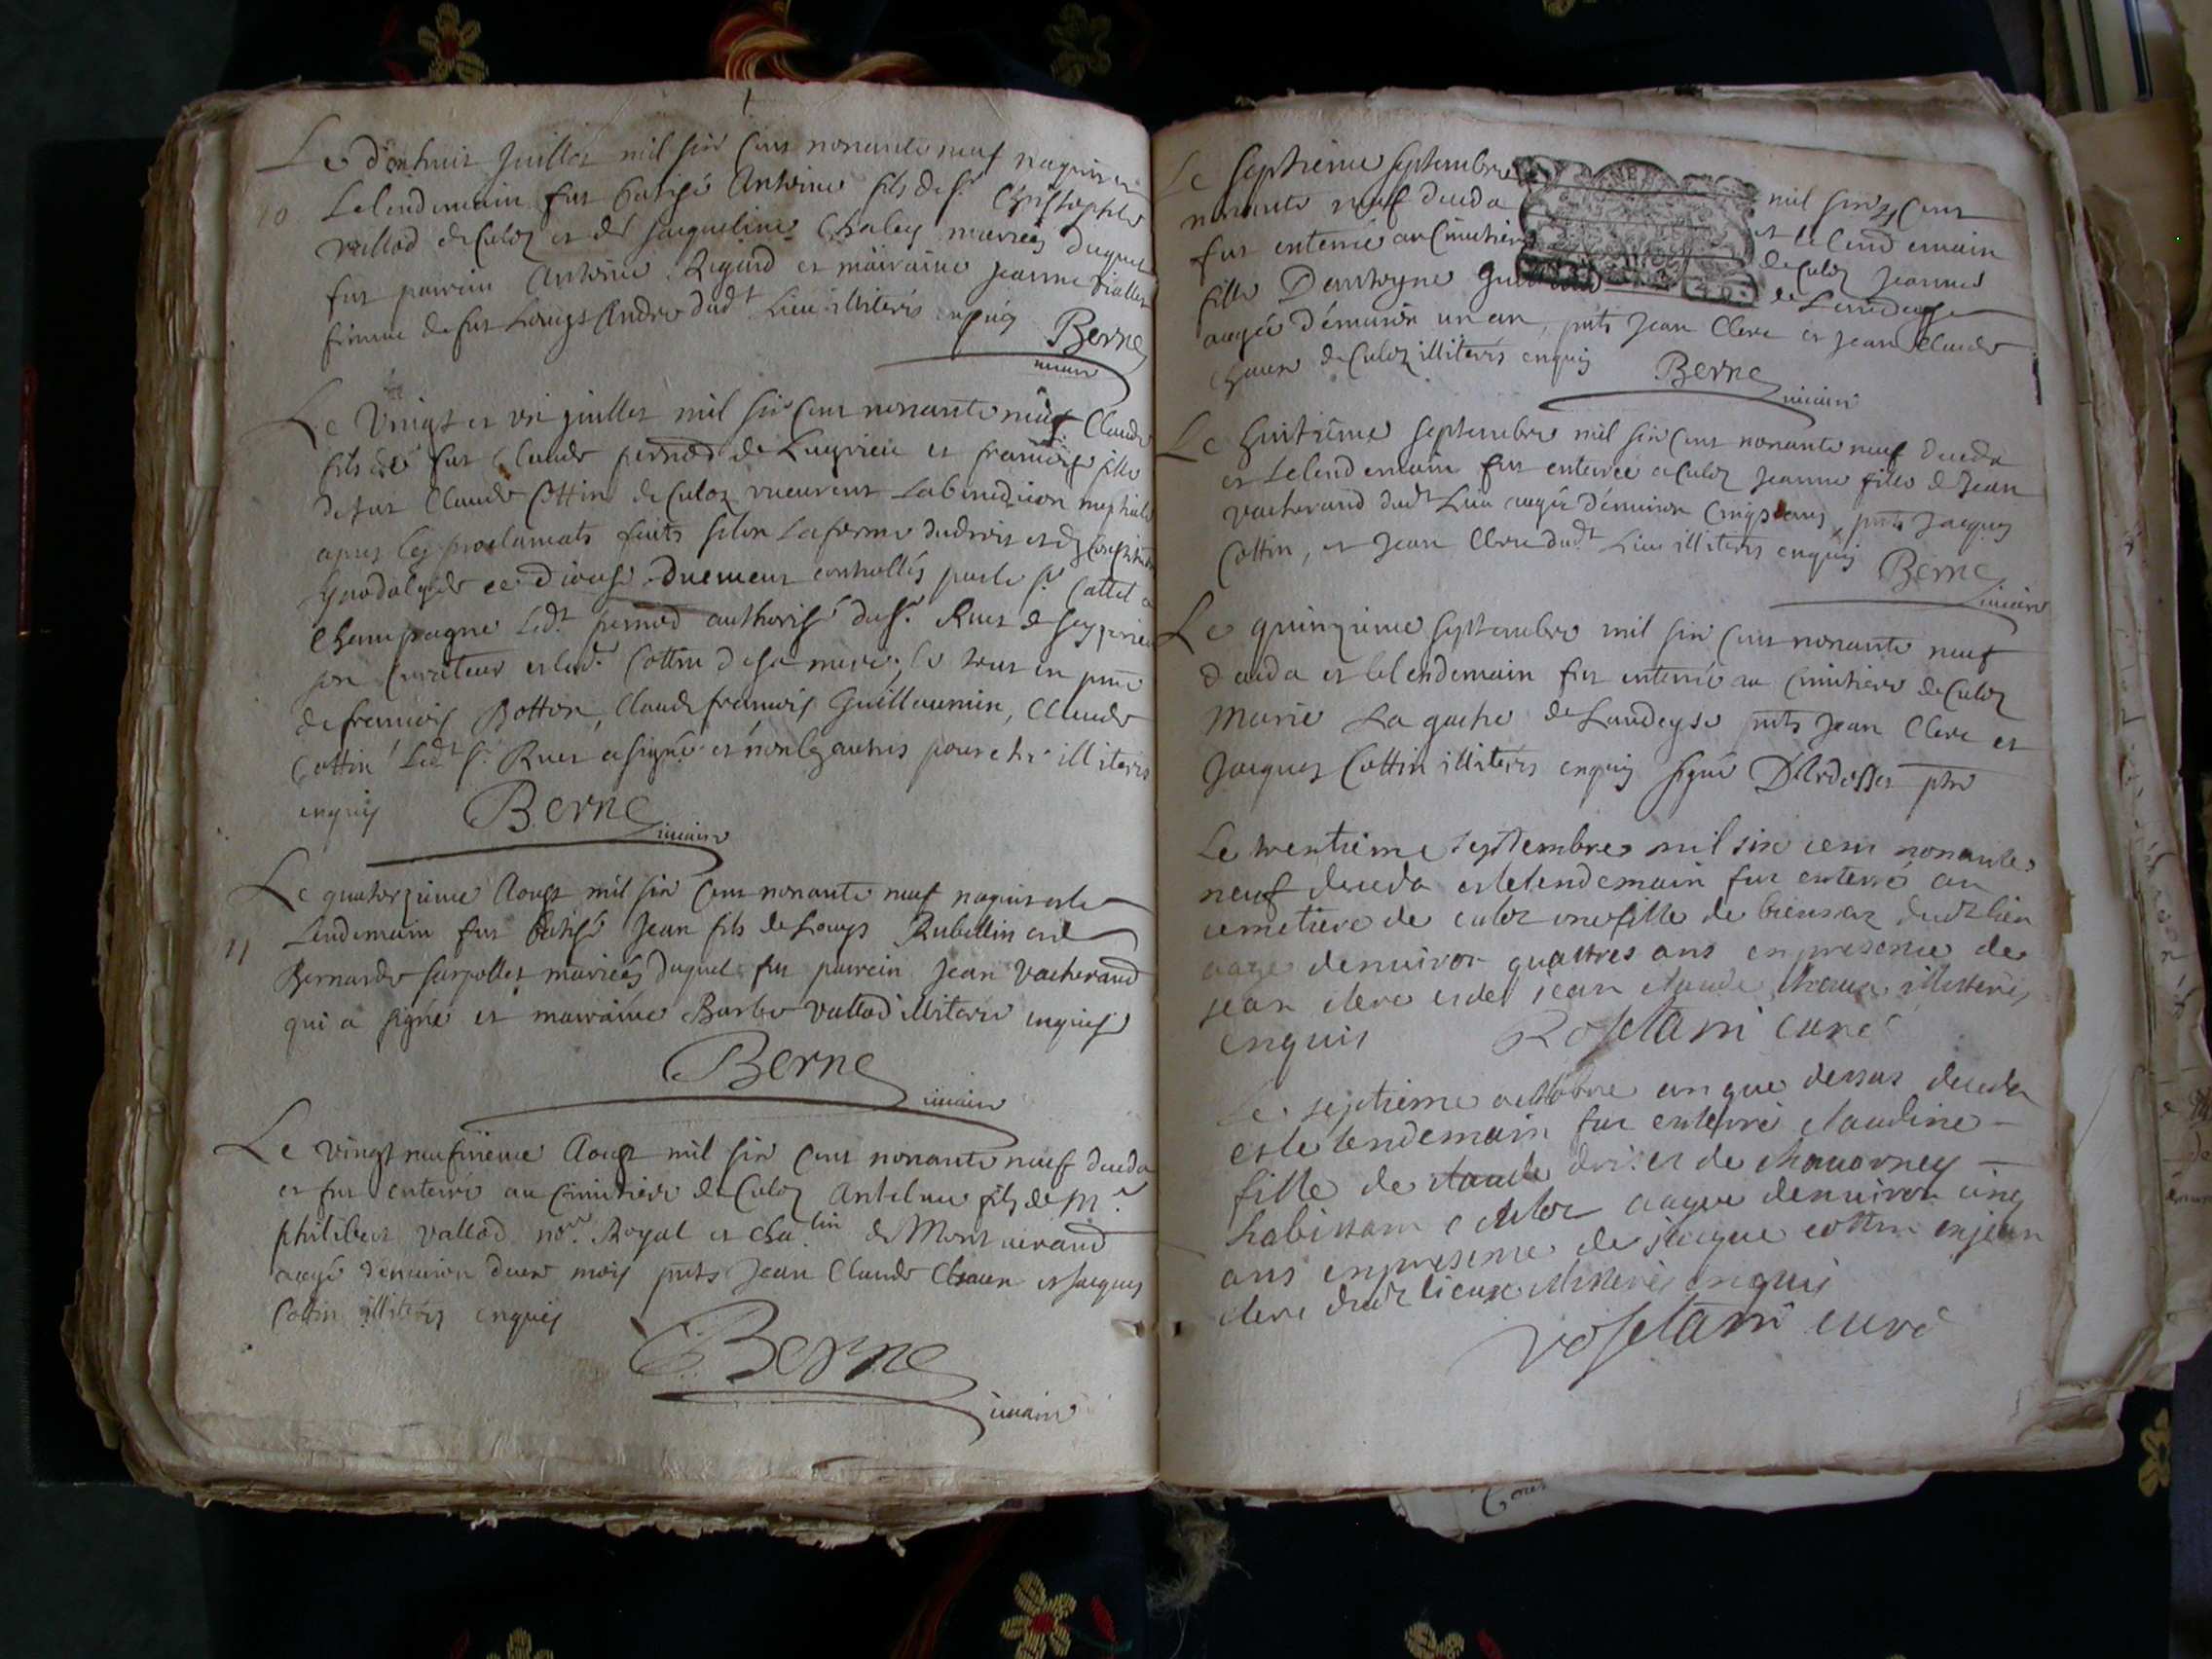 Le dixhuit Juillet mil six cens nonante neuf naquit et
10 Lelendemain fut batisé Antoine fils de sr Christophle
vallod de Culoz et de Jacqueline Chaley mariés duquel
fut parrein Antoine Rigard et mairaine Jeanne
femme de fut Louys Andre dudt Lieu illiterés enquis
Berne
vicaire
Le Vingt et un juillet mil six cens nonante neuf Claude
fils de fut Claude pernod de Luyrieu et francoise fille
de fut Claude Cottin de Culoz receurent La benediction nuptiale
apres les proclamats faits selon La forme du droit et des
Synodales de ce diocese duement controllés par le sr Cattel a
Champagne Ledt pernod authorisé du sr Ruet de
son Curateur et ladt Cottin de sa mere, le tout en pnce
de francois Botton, Claude francois Guillaumin, Claude
Cottin Ledt sr Ruet a signé et non les autres pour etre illiterés
enquis Berne
vicaire
Le quatorzieme Aoust mil six cens nonante neuf naquit et le
11 Lendemain fut batisé Jean fils de Louys Rubellin et de
Bernarde Serpollet mariés duquel fut parrein Jean Vacherand
qui a signé et mairaine Barbe Vallod illiterée enquise
Berne
vicaire
Le vingt neufvieme Aoust mil six cens nonante neuf deceda
et fut enterré au Cimitiere de Culoz Antelme fils de Mr
philibert Vallod nore Royal et chalin de Montveirand
aagé denviron deux mois pnts Jean Claude Chaux et Jacques
Cottin illiterés enquis
Berne
vicaire
Le septieme septembre mil six cens
nonante neuf deceda et le lendemain
fut enterrée au Cimitiere de Culoz Jeanne
fille Dantoyne de Landeyse
aagée denviron un an, pnts Jean Clerc et Jean Claude
Chaux de Culoz illiterés enquis
Berne
vicaire
Le huitieme septembre mil six cens nonante neuf deceda
et Lelendemain fut enterrée a Culoz Jeanne fille de Jean
vacherand dudt Lieu aagée denviron Cinq ans, pnts Jacques
Cottin, et Jean Clerc dudt Lieu illiterés enquis
Berne
vicaire
Le quinzieme septembre mil six cens nonante neuf
deceda et lelendemain fut enterrée au Cimitiere de Culoz
Marie La gache de Landeyse pnts Jean Clerc et
Jacques Cottin illiterés enquis signé pbre
Le trentieme septembre mil six cens nonante
neuf deceda et lelendemain fut enterré au
cemetiere de culoz une fille de dudt lieu
aage denviron quattres ans en presence de
jean clerc et de jean claude chaux illitterés
enquis Rosetain curé
Le septieme octobre an que dessus deceda
et le lendemain fut enterré claudine
fille de claude de
habittant a culoz aagee denviron cinq
ans en presence de jacque cottin et jean
clerc dudt lieux illitterés enquis
rosetain curé